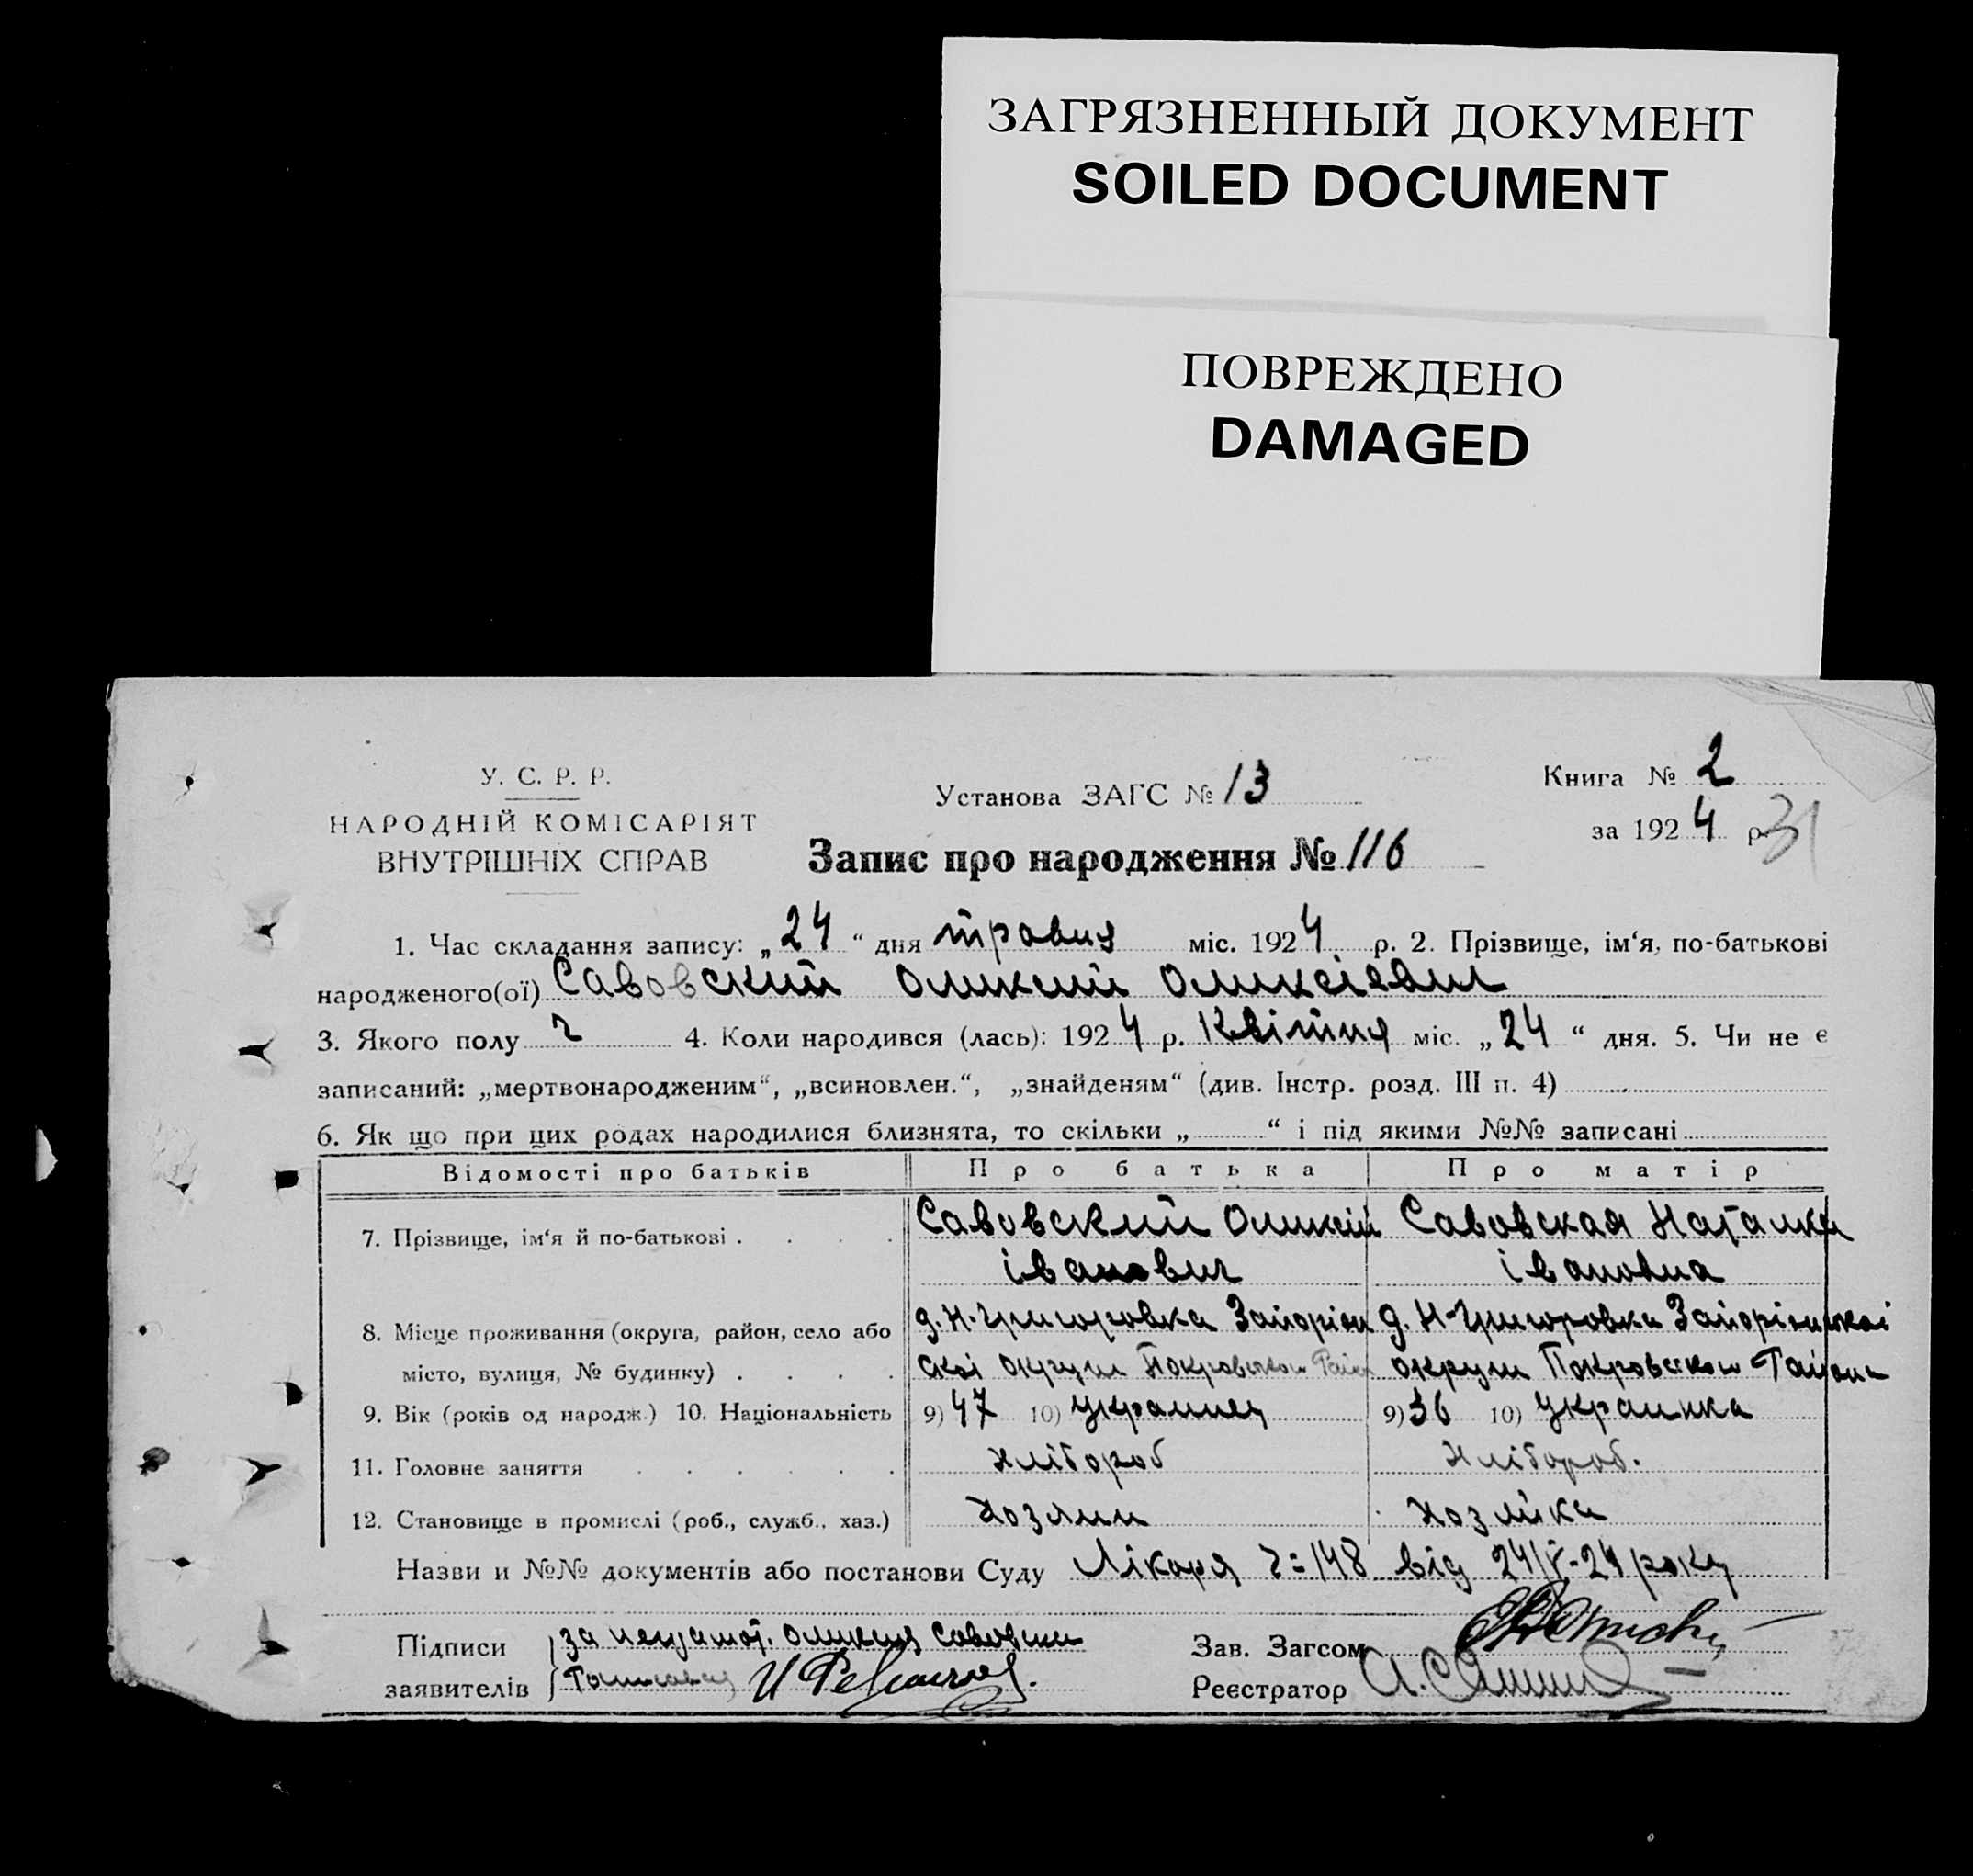 ЗАГРЯЗНЕННЫЙ ДОКУМЕНТ
SOILED DOCUMENT
ПОВРЕЖДЕНО
DAMAGED
У. С. Р. Р.
НАРОДНІЙ КОМІСАРІЯТ
ВНУТРІШНІХ СПРАВ
Установа ЗАГС № 13
Книга № 2
за 1924 р. 31
Запис про народження № 116
1. Час складання запису: „24“ дня травня міс. 1924 р. 2. Прізвище, ім‘я, по-батькові
народженого(ої) Савовский Оликсий Оликсієвич
3. Якого полу ч 4. Коли народився (лась): 1924 р. Квітня міс. „24“ дня. 5. Чи не є
записаний: „мертвонародженим“, „всиновлен.“, „знайденям“ (див. Інстр. розд. III п. 4)
6. Як що при цих родах народилися близнята, то скільки „ “ і під якими №№ записані
Відомості про батьків Про батька Про матір
7. Прізвище, ім‘я й по-батькові . . . . Савовский Оликсій Савовская Наталка
іванович івановна
8. Місце проживання (округа, район, село або д. Н-Григоровка Запоріж д. Н-Григоровка Запоріжскоі
місто, вулиця, № будинку) . . . . скоі округи Покровском Район округи Покровском Район
9. Вік (років од народж.) 10. Національність 9) 47 10) Украинец 9) 36 10) Украинка
11. Головне заняття . . . . . . Хлібороб Хлібороб.
12. Становище в промислі (роб., служб., хаз.) Хозяин Хозяйка
Назви и №№ документів або постанови Суду Лікаря ч=148 від 24/V-24 року
Підписи за Оликсия Савовски Зав. Загсом
заявителів Реєстратор